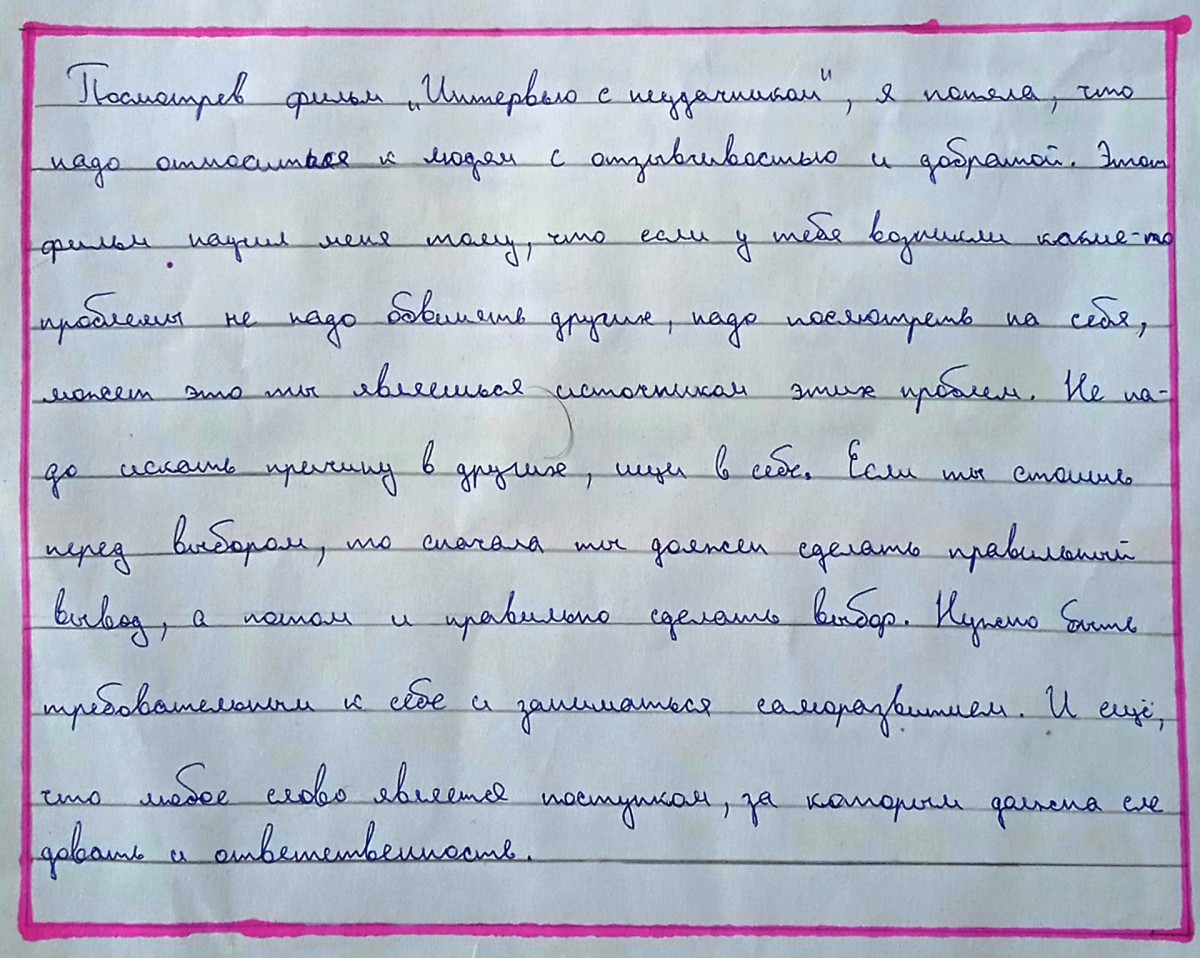 Посмотрев фильм „Интервью с неудачником", я поняла, что
надо относиться к людям с отзывчивостью и добротой. Этот
фильм научил меня тому, что если у тебя возникли какие-то
проблемы не надо обвинять других, надо посмотреть на себя,
может это ты являешься источником этих проблем. Не на-
до искать причину в других, ищи в себе. Если ты стоишь
перед выбором, то сначала ты должен сделать правильный
вывод, а потом и правильно сделать выбор. Нужно быть
требовательным к себе и заниматься саморазвитием. И ещё,
что любое слово является поступком, за которым должна сле
довать и ответственность.